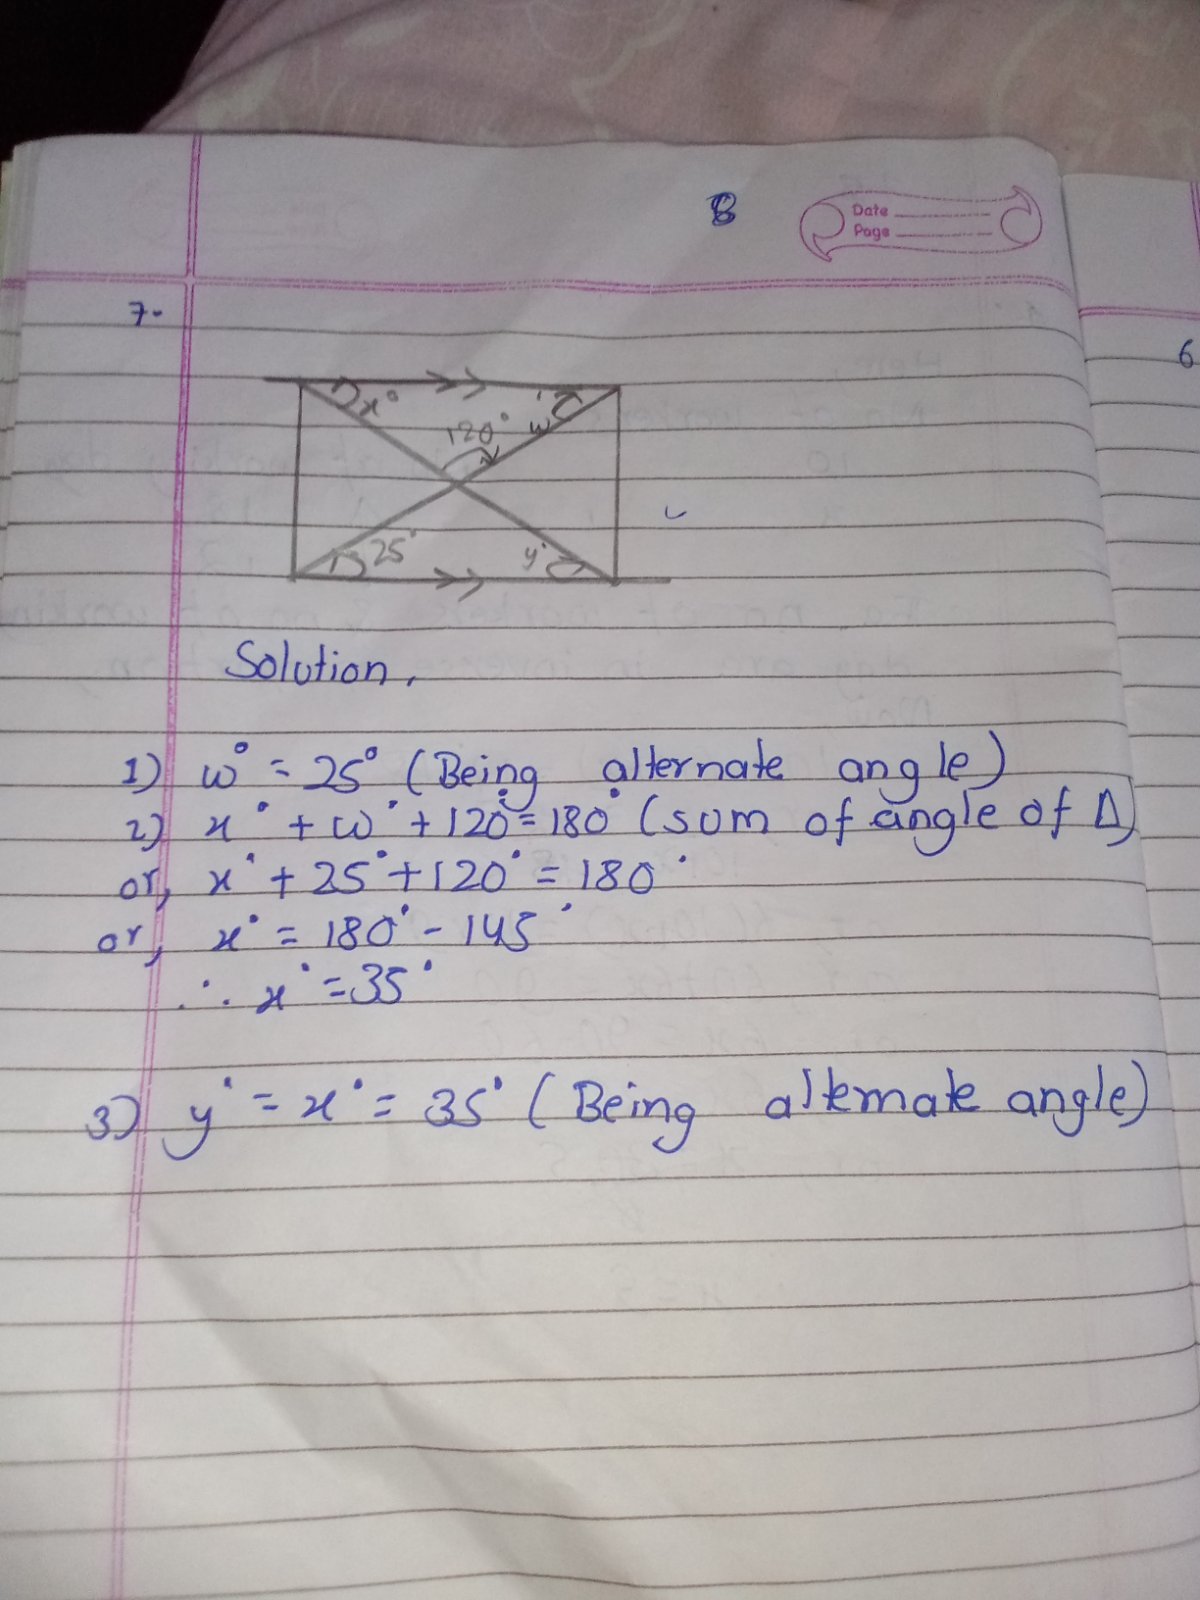 B
Date
Page
7.
6
x°
w°
120°
25°
y°
Solution,
1) w° = 25° (Being alternate angle)
2) x° + w° + 120° = 180° (sum of angle of Δ)
or, x° + 25° + 120° = 180°
or, x° = 180° - 145°
∴ x° = 35°
3) y° = x° = 35° (Being alternate angle)